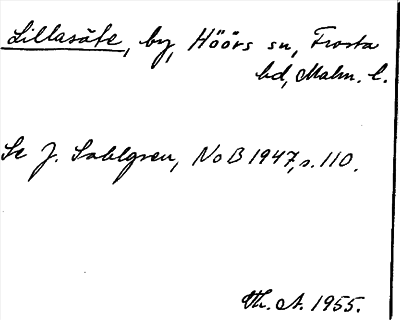 Lillasäte, by, Höörs sn, Frosta
hd, Malm. l.
Se J. Sahlgren, NoB 1947, s. 110.
Th. A. 1955.